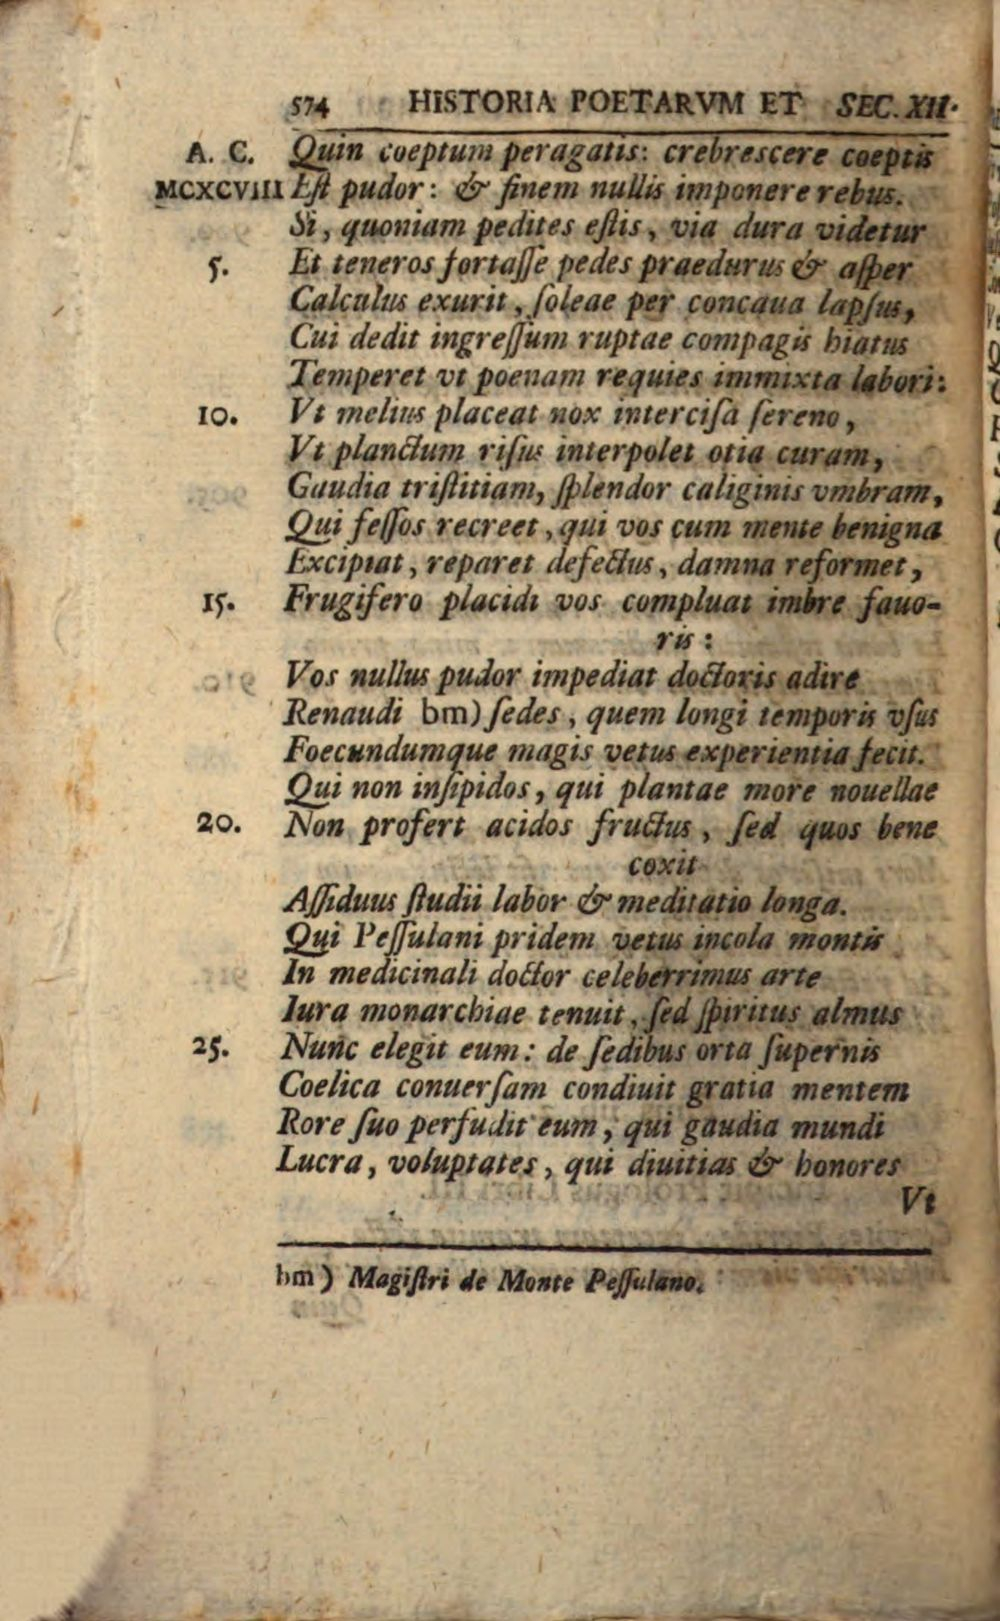 574 HISTORIA POETARVM ET SEC. XII.
A. C. Quin coeptum peragatis: crebrescere coeptis
MCXCVIII Eſt pudor: & finem nullis imponere rebus.
Si, quoniam pedites eſtis, via dura videtur
5. Et teneros fortaſſe pedes praedurus & aſper
Calculus exurit, ſoleae per concaua lapſus,
Cui dedit ingreſſum ruptae compagis hiatus
Temperet vt poenam requies immixta labori:
10. Vt melius placeat nox interciſa ſereno,
Vt planctum riſus interpolet otia curam,
Gaudia triſtitiam, ſplendor caliginis vmbram,
Qui feſſos recreet, qui vos cum mente benigna
Excipiat, reparet defectus, damna reformet,
15. Frugifero placidi vos compluat imbre fauo-
ris:
Vos nullus pudor impediat doctoris adire
Renaudi bm) ſedes, quem longi temporis vſus
Foecundumque magis vetus experientia fecit.
Qui non inſipidos, qui plantae more nouellae
20. Non profert acidos fructus, ſed quos bene
coxit
Aſſiduus ſtudii labor & meditatio longa.
Qui Peſſulani pridem vetus incola montis
In medicinali doctor celeberrimus arte
Iura monarchiae tenuit, ſed ſpiritus almus
25. Nunc elegit eum: de ſedibus orta ſupernis
Coelica conuerſam condiuit gratia mentem
Rore ſuo perfudit eum, qui gaudia mundi
Lucra, voluptates, qui diuitias & honores
Vt
bm) Magiſtri de Monte Peſſulano.